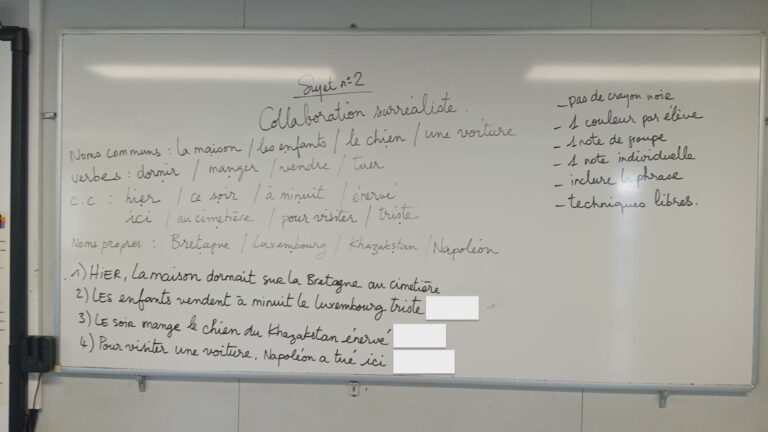 Sujet n°2
Collaboration surréaliste.
Noms communs : la maison / les enfants / le chien / une voiture
Verbes : dormir / manger / vendre / tuer
C.C : hier / ce soir / à minuit / énervé
ici / au cimetière / pour visiter / triste
Noms propres : Bretagne / Luxembourg / Khazakstan / Napoléon
1) HIER, la maison dormait sur la Bretagne au cimetière
2) LES enfants vendent à minuit le Luxembourg triste
3) LE soir mange le chien du Khazakstan énervé
4) Pour visiter une voiture, Napoléon a tué ici
_ pas de crayon noir
_ 1 couleur par élève
_ 1 note de groupe
_ 1 note individuelle
_ inclure la phrase
_ techniques libres.